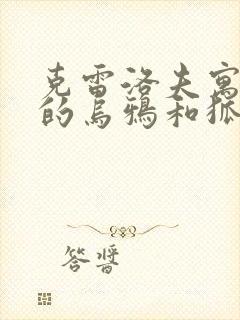 克雷洛夫寓
的乌鸦和狐
答酱